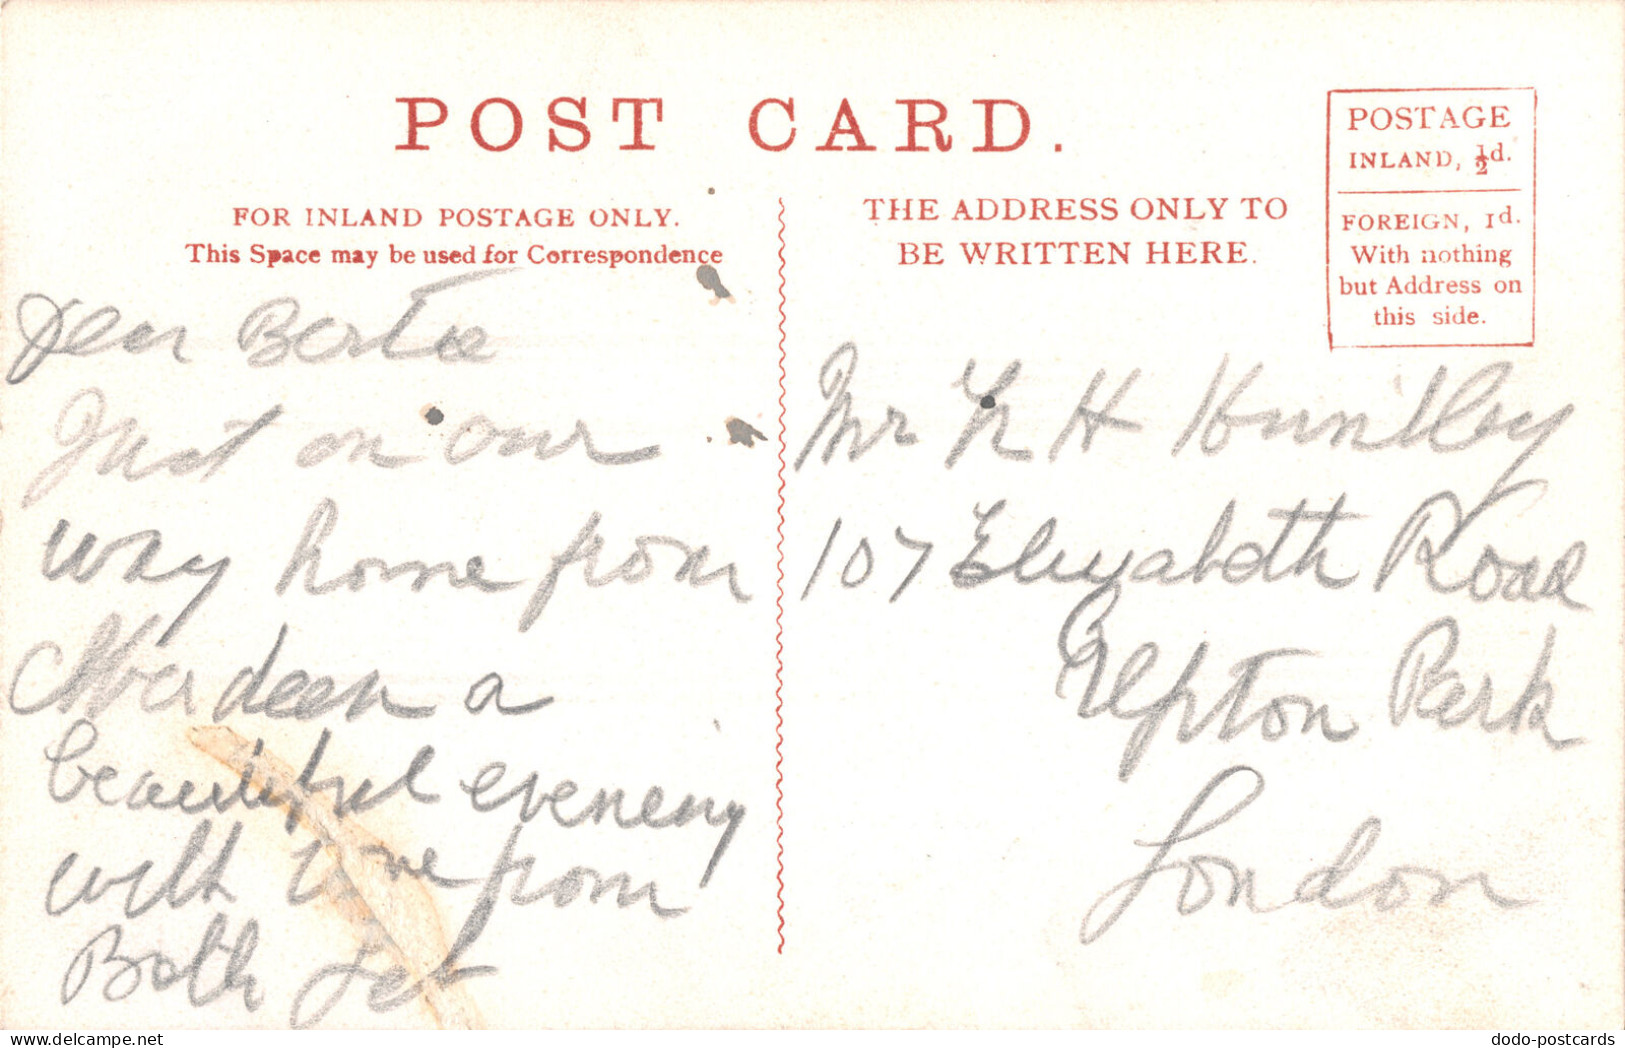 POST CARD.
POSTAGE
INLAND, ½d.
FOREIGN, 1d.
With nothing
but Address on
this side.
FOR INLAND POSTAGE ONLY.
This Space may be used for Correspondence
THE ADDRESS ONLY TO
BE WRITTEN HERE.
Dear Bertie
Just on our
way home from
Aberdeen a
beautiful evening
with love from
Both
Mr H Huntley
107 Elizabeth Road
Upton Park
London
dodo-postcards